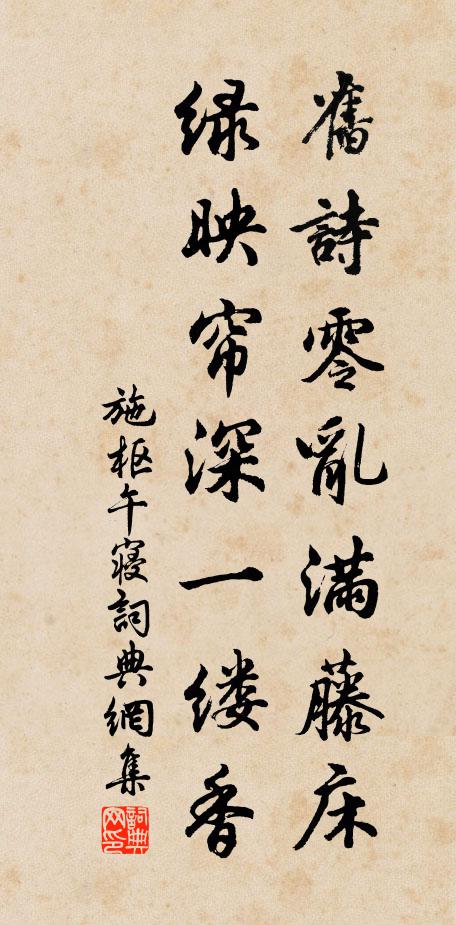 舊詩零亂滿藤床
绿映帘深一缕香
施枢午寝詞典網集
詞典网印